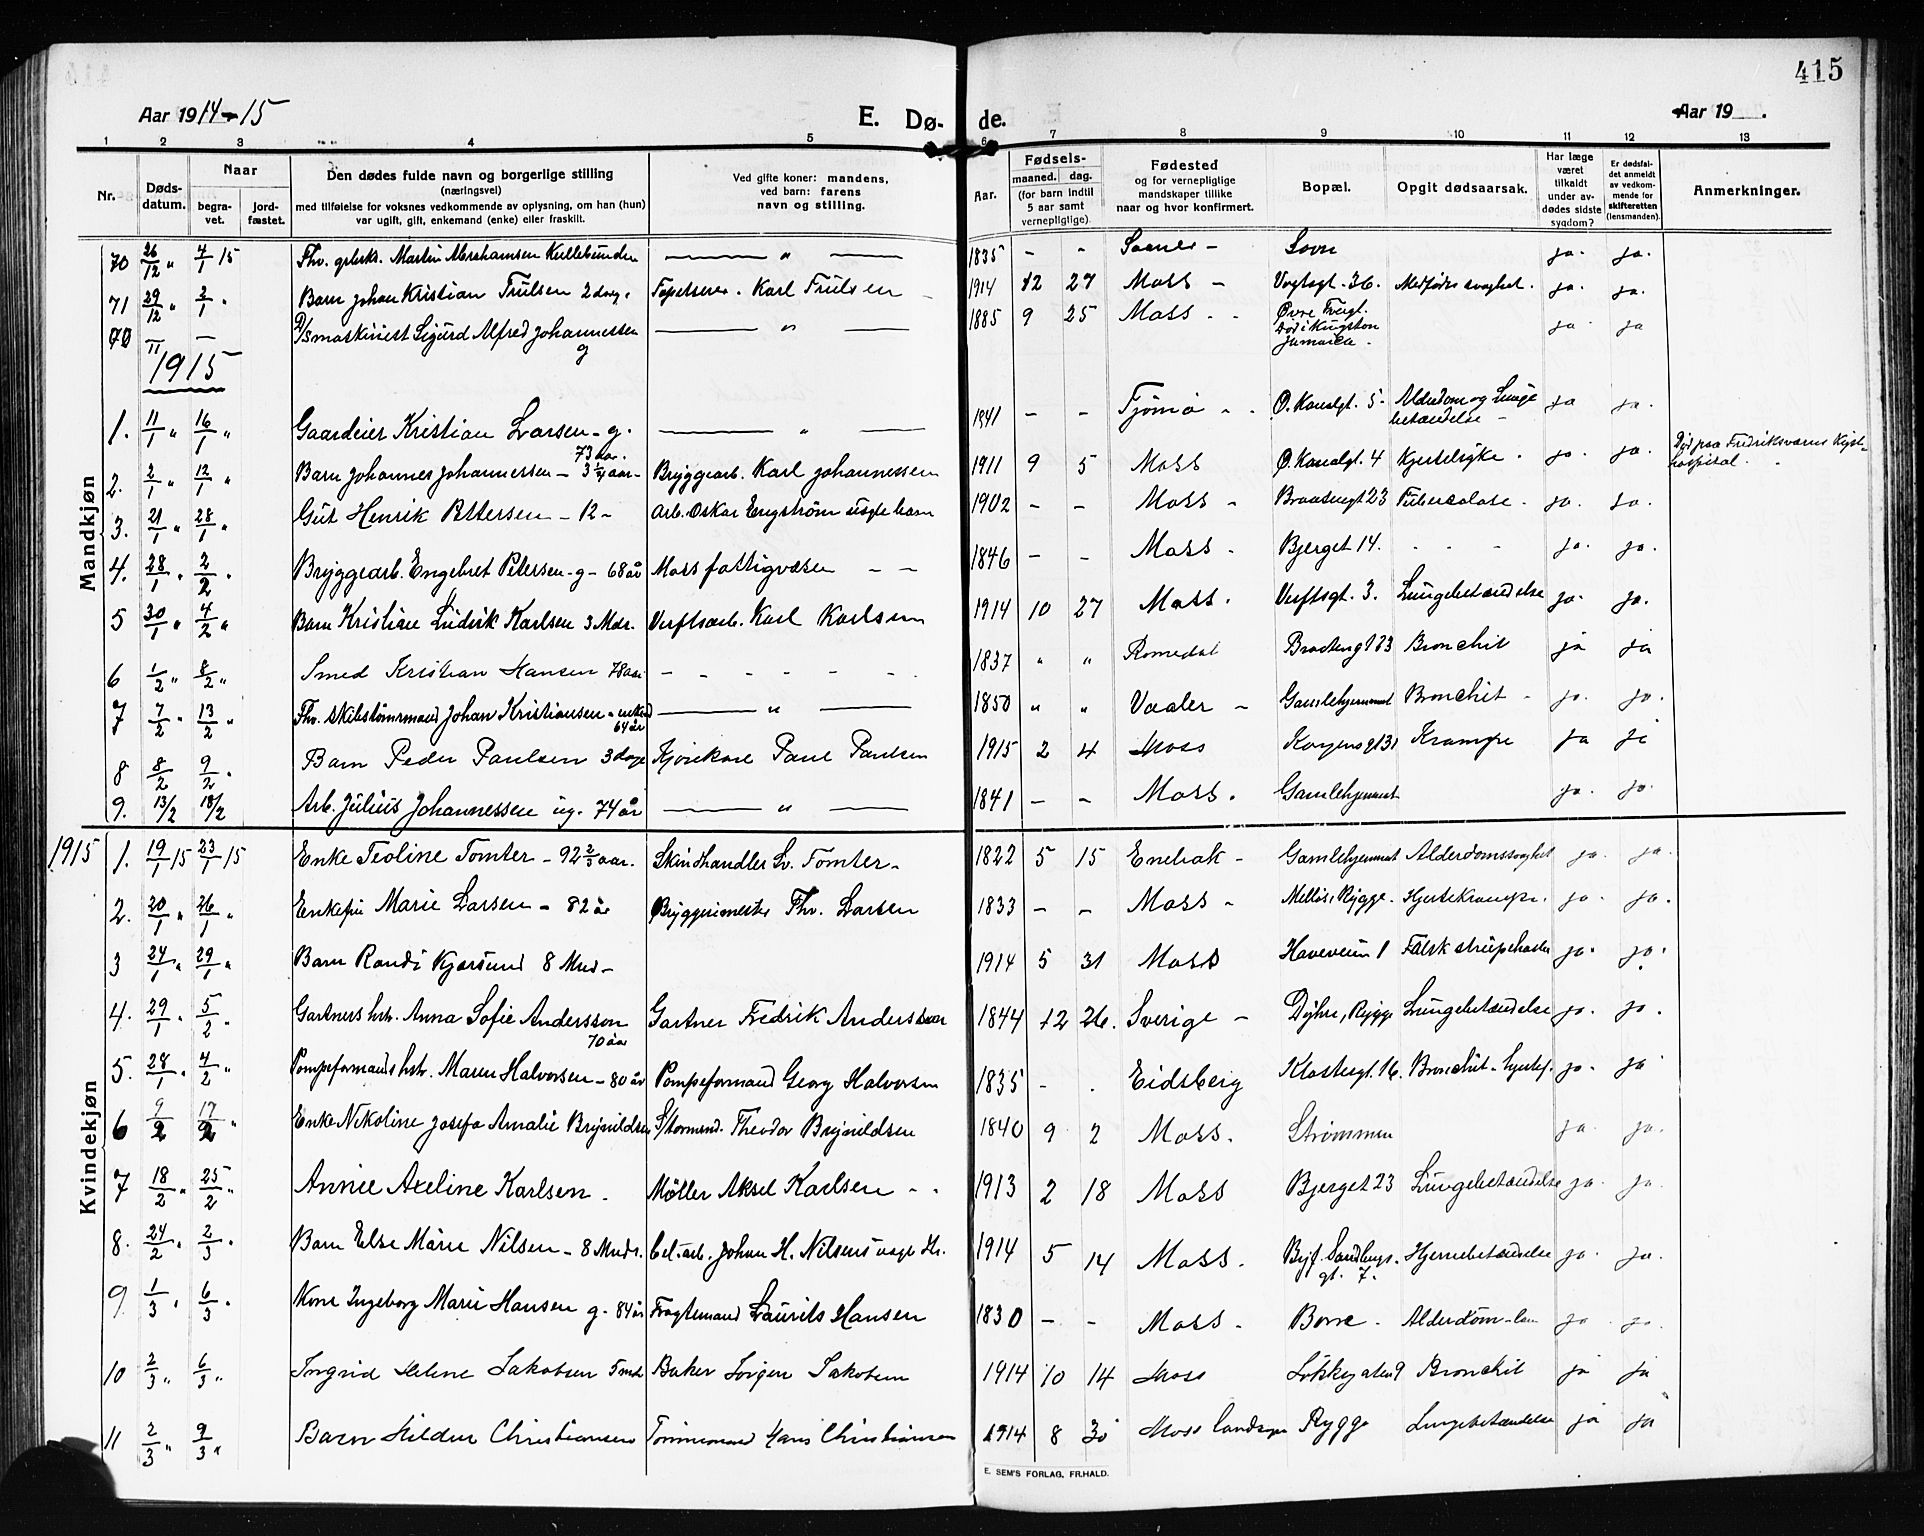 415
Aar 1914-15 E. Dø- de. Aar 19 .
1 2 3 4 5 6 7 8 9 10 11 12 13
Nr. Døds-datum. Naar begra-vet. jord-fæstet. Den dødes fulde navn og borgerlige stilling (næringsvei) med tilføielse for voksnes vedkommende av oplysning, om han (hun) var ugift, gift, enkemand (enke) eller fraskilt. Ved gifte koner: mandens, ved barn: farens navn og stilling. Aar. Fødsels- maaned. dag. (for barn indtil 5 aar samt vernepligtige). Fødested og for vernepligtige mandskaper tillike naar og hvor konfirmert. Bopæl. Opgit dødsaarsak. Har læge været tilkaldt under av-dødes sidste sygdom? Er dødsfal-det anmeldt av vedkom-mende for skifteretten (lensmanden). Anmerkninger.
Mandkjøn
70 26/12 " 4/1 15 Fhv. Martin Abrahamsen — " — 1835 - - Saaner - Sovn ja. ja.
71 29/12 " 2/1 " Barn Johan Kristian Trulsen 2 dag. Tapetserer. Karl Trulsen 1914 12 27 Moss - Vogtsgt. 36. Medfødt svaghet. ja. ja.
70 11 — S/S maskinist Sigurd Alfred Johannessen g — " — 1885 9 25 Moss - - Øvre Torvgt. Død i Kingston Jamaica. ja. ja
1915
1. 11/1 " 16/1 " Gaardeier Kristian Larsen - g. 73 aar. — " — 1841 - - Tjømø - - Ø. Kanalgt. 5- Alderdom og Lungebetændelse - ja ja.
2. 2/1 " 12/1 " Barn Johannes Johannessen - 3 1/4 aar - Bryggearb. Karl Johannessen 1911 9 5 Moss Ø. Kanalgt. 4 Kjertelsyke. ja. ja. Død paa Fredriksværns Kysthospital.
3. 21/1 " 28/1 " Gut Henrik Pettersen - 12 - Arb. Oskar Engstrøm uegte barn 1902 - - Moss - Braatengt 23 Tuberculose - ja. ja.
4. 28/1 " 2/2 " Bryggearb. Engebret Petersen - g - 68 år Moss fattigvæsen - - 1846 - - Moss - Bjerget 14. - - - ja. ja.
5 30/1 " 4/2 " Barn Kristian Ludvik Karlsen 3 Mdr. Verftsarb. Karl Karlsen 1914 10 27 Moss. Verftsgt. 3. Lungebetændelse ja. ja.
6 1/2 " 8/2 " Smed Kristian Hansen 78 aar - - - - - 1837 " " Romedal Braatengt 23 Bronchit ja ja
7 7/2 " 13/2 " Fhv. Skibstømrmand Johan Kristiansen - enkem 64 år — " — 1850 " " Vaaler - Gamlehjemmet Bronchit - ja. ja.
8 8/2 9/2 " Barn Peder Paulsen 3 dage Kjørekarl Paul Paulsen 1915 2 4 Moss Kongensgt 31 Krampe ja ja
9. 13/2 18/2 Arb. Julius Johannessen ug. 74 år — " — 1841 - - Moss. Gamlehjemmet ja. ja.
Kvindekjøn
1915 1. 19/1 15 23/1 15 Enke Teoline Tomter - 92 2/3 aar. Skindhandler Sv. Tomter - 1822 5 15 Enebak - Gamlehjemmet Alderdomssvaghet ja. ja.
2. 20/1 " 26/1 " Enkefru Marie Larsen - 82 år Bryggerimester Thv. Larsen 1833 - - Moss - Melløs, Rygge. Hjertekrampe. ja. ja.
3 24/1 " 29/1 " Barn Randi Kjørsund 8 Mnd - 1914 5 31 Moss Haveveien 1 Falsk strupehoste ja. ja.
4. 29/1 " 5/2 " Gartners hstr. Anna Sofie Andersson 70 aar Gartner Fredrik Andersson 1844 12 26. Sverige - Dyhre, Rygge Lungebetændelse ja. ja.
5. 28/1 " 4/2 " Pompeformands hstr. Maren Halvorsen - 80 år Pompeformand Georg Halvorsen 1835 - - Eidsberg Klostergt. 16. Bronchit - hjertef. ja. ja
6 9/2 17/2 " Enke Nikoline Josefa Amalie Brynildsen S/tormand. Theodor Brynildsen 1840 9 2 Moss. Strømmen ja. ja.
7 18/2 " 25/2 " Annie Axeline Karlsen. Møller Aksel Karlsen - - 1913 2 18 Moss Bjerget 23 Lungebetændelse ja. ja.
8. 24/2 " 2/3 " Barn Else Marie Nilsen - 8 Mndr. Cel.-arb. Johan H. Nilsens uegte 1914 5 14 Moss. Byf. Sandbergs gt. 7. Hjernebetændelse ja. ja.
9 1/3 " 6/3 " Kone Ingeborg Marie Hansen g. 84 år Fragtemand Laurits Hansen 1830 - - Moss - Borre - Alderdom ja. ja.
10 2/3 " 6/3 " Ingrid Helene Jakobsen 5 md Baker Jørgen Jakobsen 1914 10 14 Moss Løkkegaten 9 Bronchit ja ja
11 2/3 " 9/3 " Barn Hildur Christiansen Tømmermand Hans Christiansen 1914 8 30 Moss landsogn Rygge Lungebetændelse ja ja
E. SEM'S FORLAG, FR.HALD.